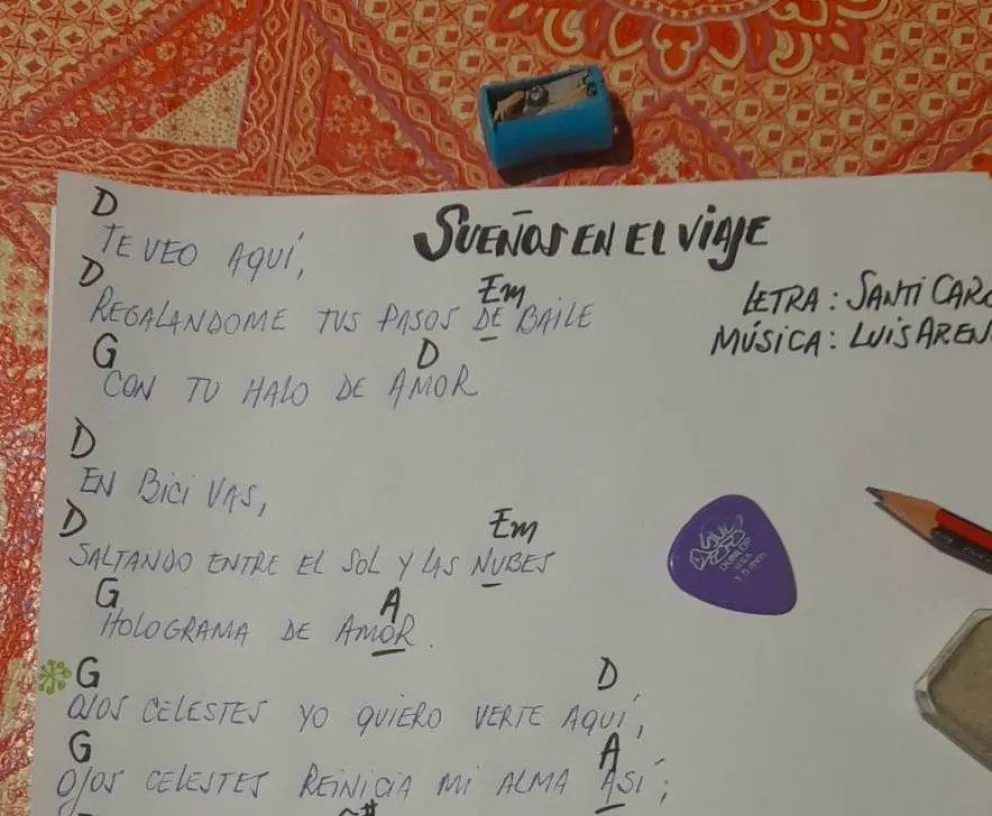 SUEÑOS EN EL VIAJE
LETRA: SANTI CARO
MÚSICA: LUIS AREN
D
TE VEO AQUÍ,
D Em
REGALANDOME TUS PASOS DE BAILE
G D
CON TU HALO DE AMOR
D
EN BICI VAS,
D Em
SALTANDO ENTRE EL SOL Y LAS NUBES
G A
HOLOGRAMA DE AMOR.
G D
OJOS CELESTES YO QUIERO VERTE AQUÍ,
G A
OJOS CELESTES REINICIA MI ALMA ASÍ;
DUNLOP